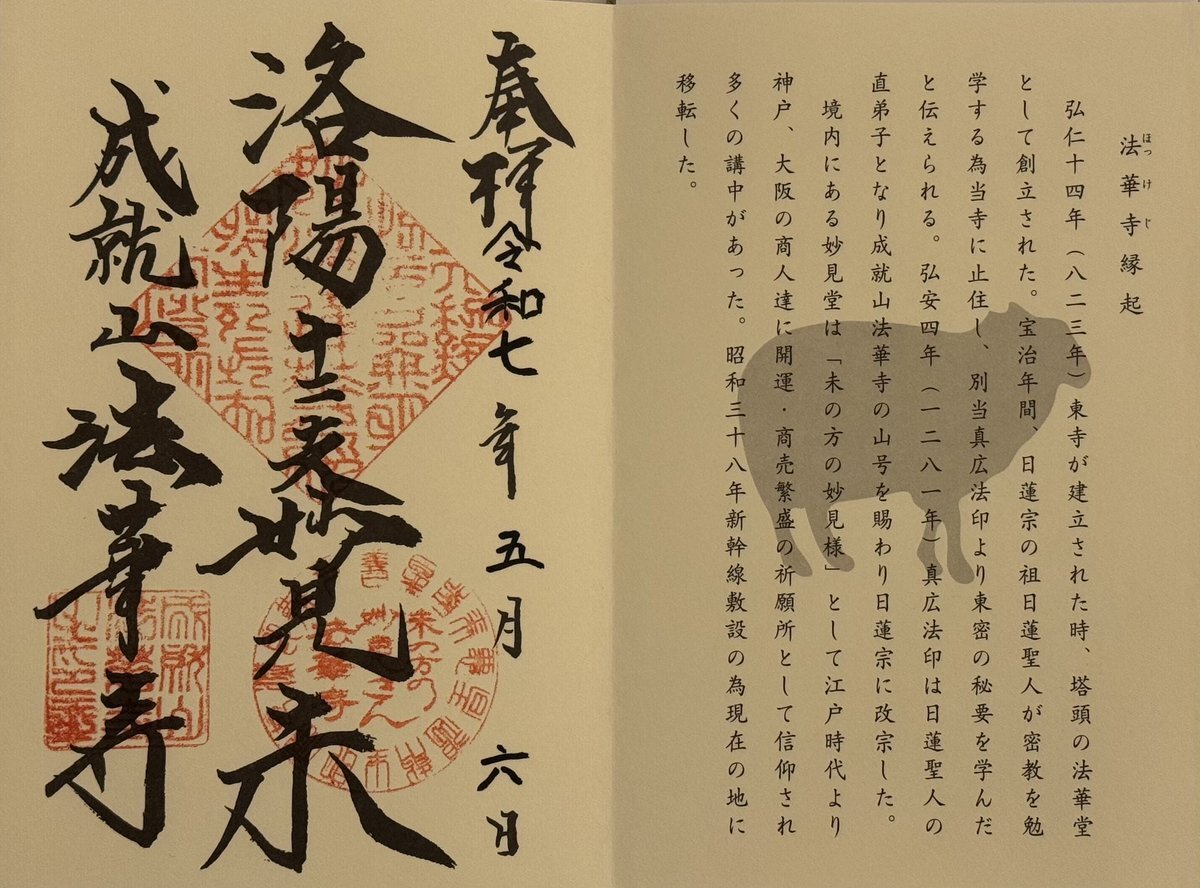 法華寺縁起
ほっけじ
弘仁十四年(八二三年)東寺が建立された時、塔頭の法華堂
として創立された。宝治年間、日蓮宗の祖日蓮聖人が密教を勉
学する為当寺に止住し、別当真広法印より東密の秘要を学んだ
と伝えられる。弘安四年(一二八一年)真広法印は日蓮聖人の
直弟子となり成就山法華寺の山号を賜わり日蓮宗に改宗した。
境内にある妙見堂は「未の方の妙見様」として江戸時代より
神戸、大阪の商人達に開運・商売繁盛の祈願所として信仰され
多くの講中があった。昭和三十八年新幹線敷設の為現在の地に
移転した。
奉拝 令和七年五月六日
洛陽十二支妙見 未
成就山 法華寺
未の方の
妙見さん
法華寺